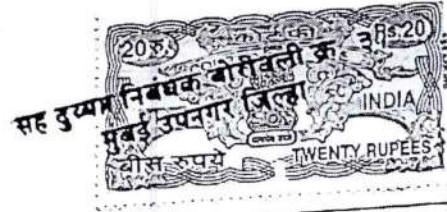 20रु. Rs.20
सह दुय्यम निबंधक बोरीवली क्र ३
मुंबई उपनगर जिल्हा
INDIA
सत्यमेव जयते
बीस रुपये TWENTY RUPEES